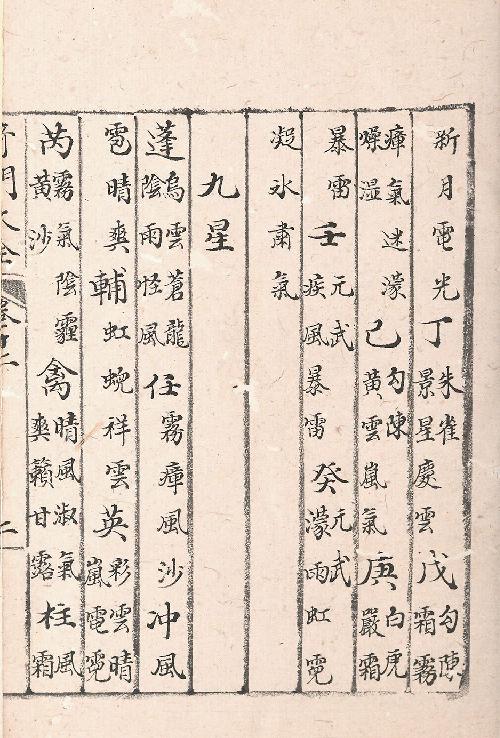 新月電光丁朱雀景星慶雲戊勾陳霜霧
瘴氣燥湿迷濛己勾陳黄雲嵐氣庚白虎嚴霜
暴雷壬元武疾風暴雷癸元武濛雨虹霓
凝冰肅氣
九星
蓬烏雲陰雨蒼龍怪風任霧瘴風沙冲風
雹晴爽輔虹蜺祥雲英彩雲晴嵐電霓
芮霧氣黄沙陰霾禽晴風淑氣爽籟甘露柱風霜
奇門大全
二